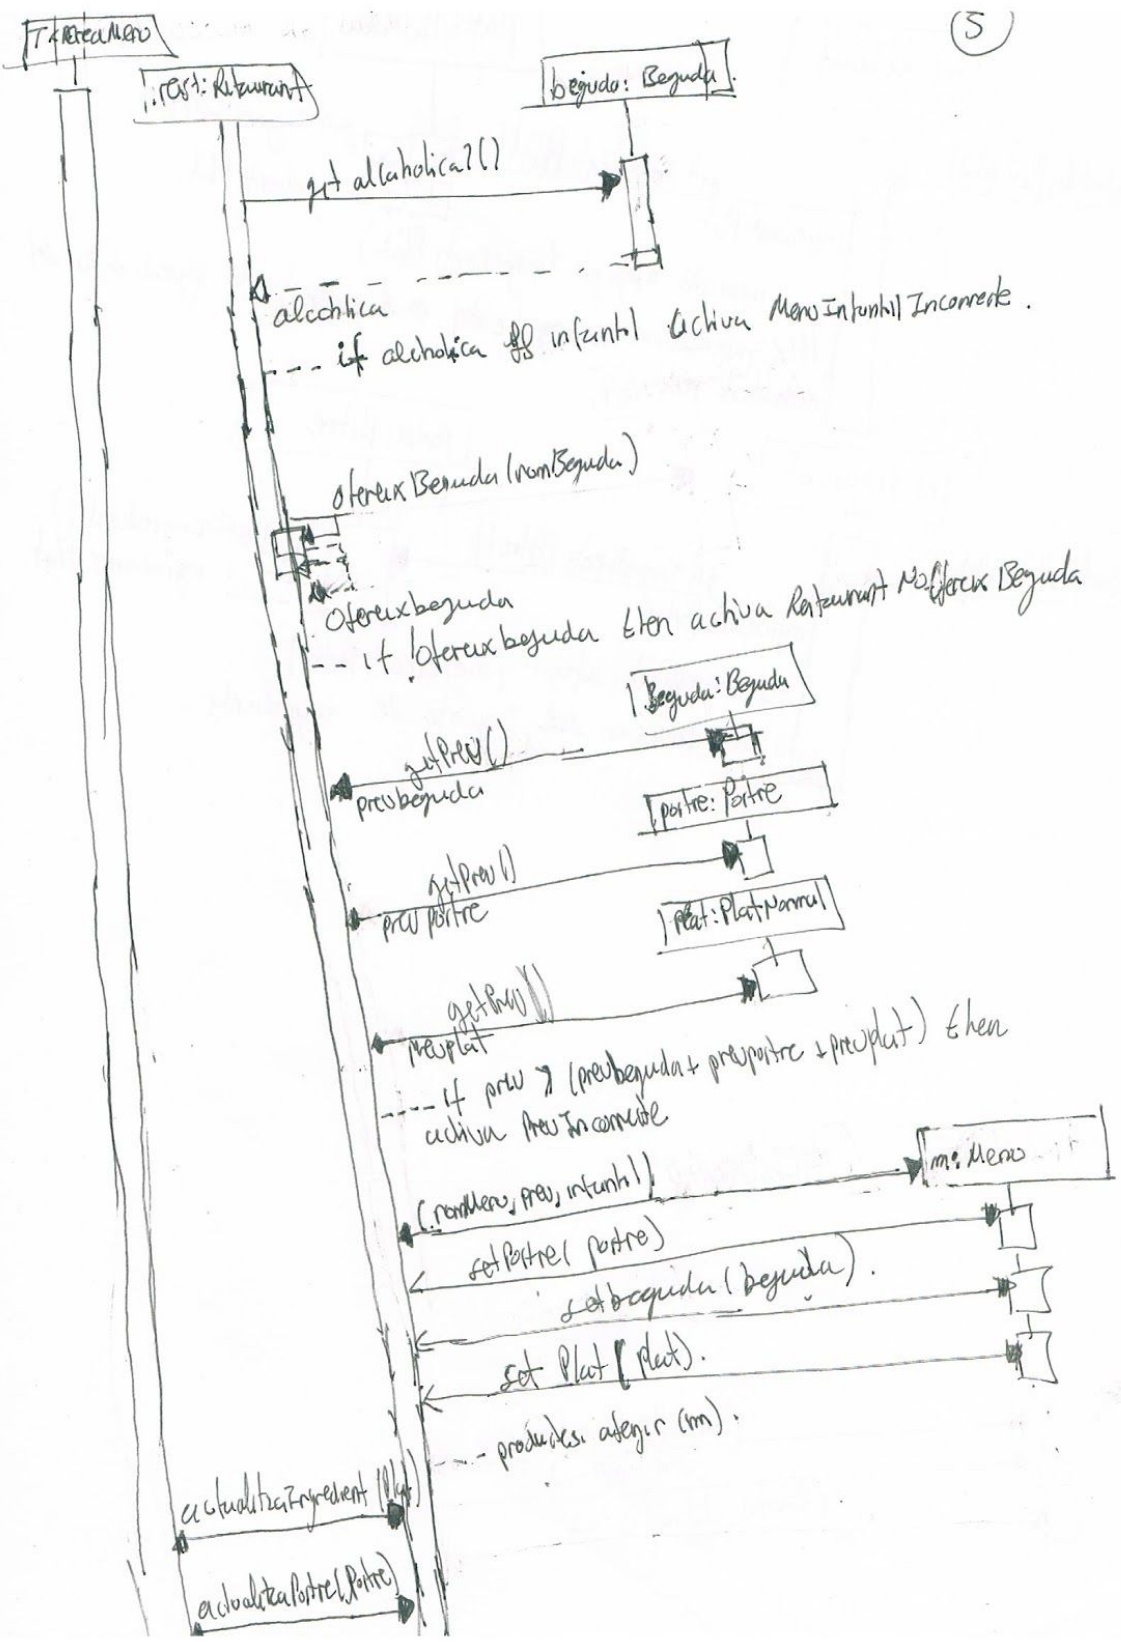 5
TxCreaMenu
:rest: Restaurant
beguda: Beguda
get alcaholica?()
alcohlica
--- if alcholica && infantil activa MenuInfantilIncorrecte.
ofereixBeguda(nomBeguda)
Ofereixbeguda
--- if !Ofereixbeguda then activa Restaurant NoOfereix Beguda
Beguda: Beguda
getPreu()
preubeguda
postre: Postre
getPreu()
preu postre
Plat: PlatNormal
getPreu()
preuplat
---- if preu > (preubeguda + preupostre + preuplat) then
activa PreuIncorrecte
m: Menu
(nomMenu, preu, infantil)
setPostre( postre)
setbeguda (beguda).
set Plat ( plat).
---- productes. afegir (m).
actualitzaIngredient (Plat)
actualitzaPostre(Postre)